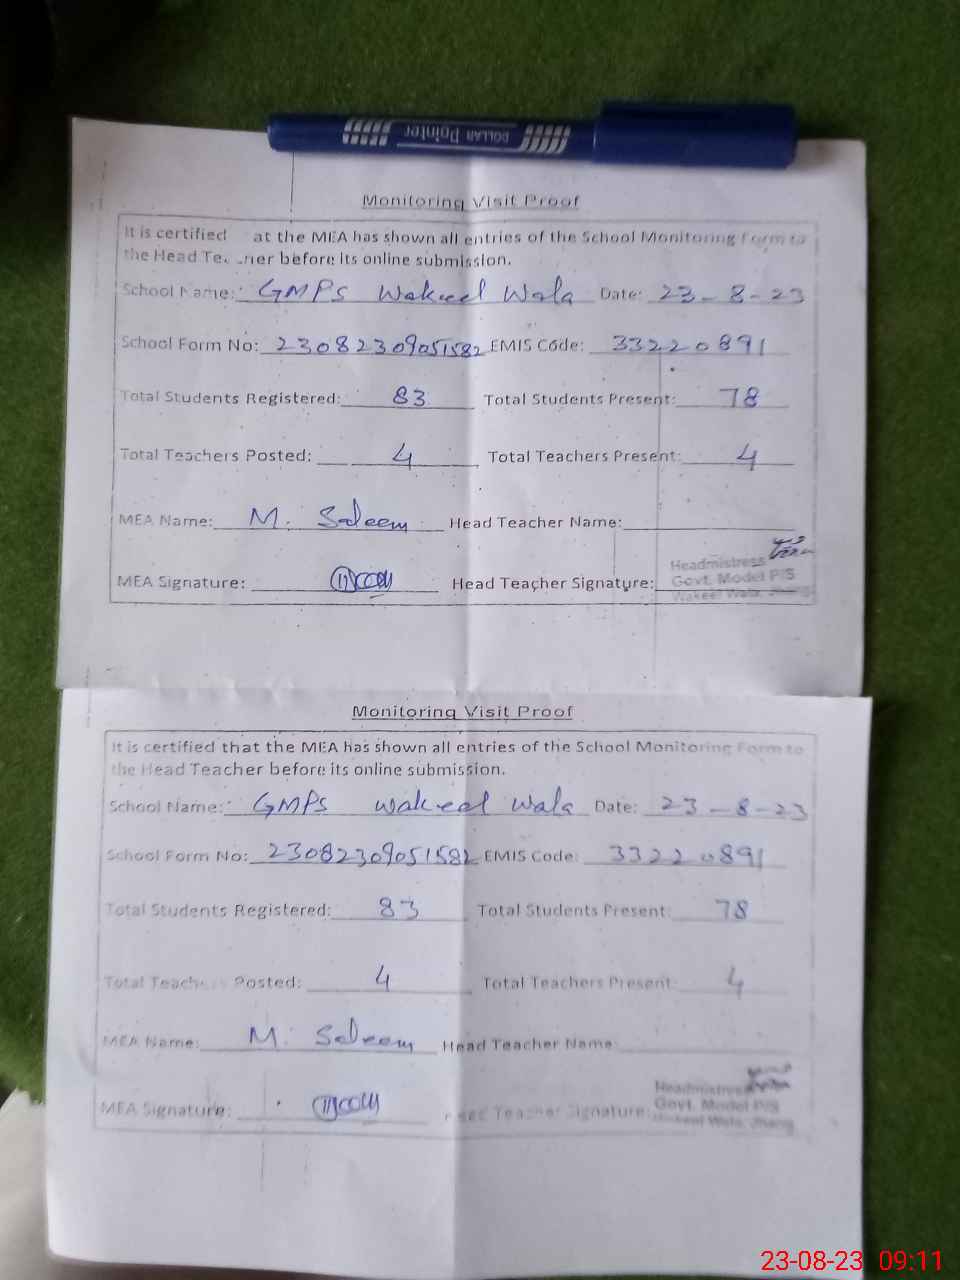 DOLLAR Pointer
Monitoring Visit Proof
It is certified at the MEA has shown all entries of the School Monitoring Form to
the Head Te ner before its online submission.
School Name: GMPS Wakeel Wala Date: 23-8-23
School Form No: 23082309051582 EMIS Code: 33220891
Total Students Registered: 83 Total Students Present: 78
Total Teachers Posted: 4 Total Teachers Present: 4
MEA Name: M. Saleem Head Teacher Name:
MEA Signature: Head Teacher Signature:
Headmistress
Govt. Model P/S
Wakeel Wala, Jhang
Monitoring Visit Proof
It is certified that the MEA has shown all entries of the School Monitoring Form to
the Head Teacher before its online submission.
School Name: GMPS Wakeel Wala Date: 23-8-23
School Form No: 23082309051582 EMIS Code: 33220891
Total Students Registered: 83 Total Students Present: 78
Total Teachers Posted: 4 Total Teachers Present: 4
MEA Name: M. Saleem Head Teacher Name:
MEA Signature: Head Teacher Signature:
Headmistress
Govt. Model P/S
Wakeel Wala, Jhang
23-08-23 09:11